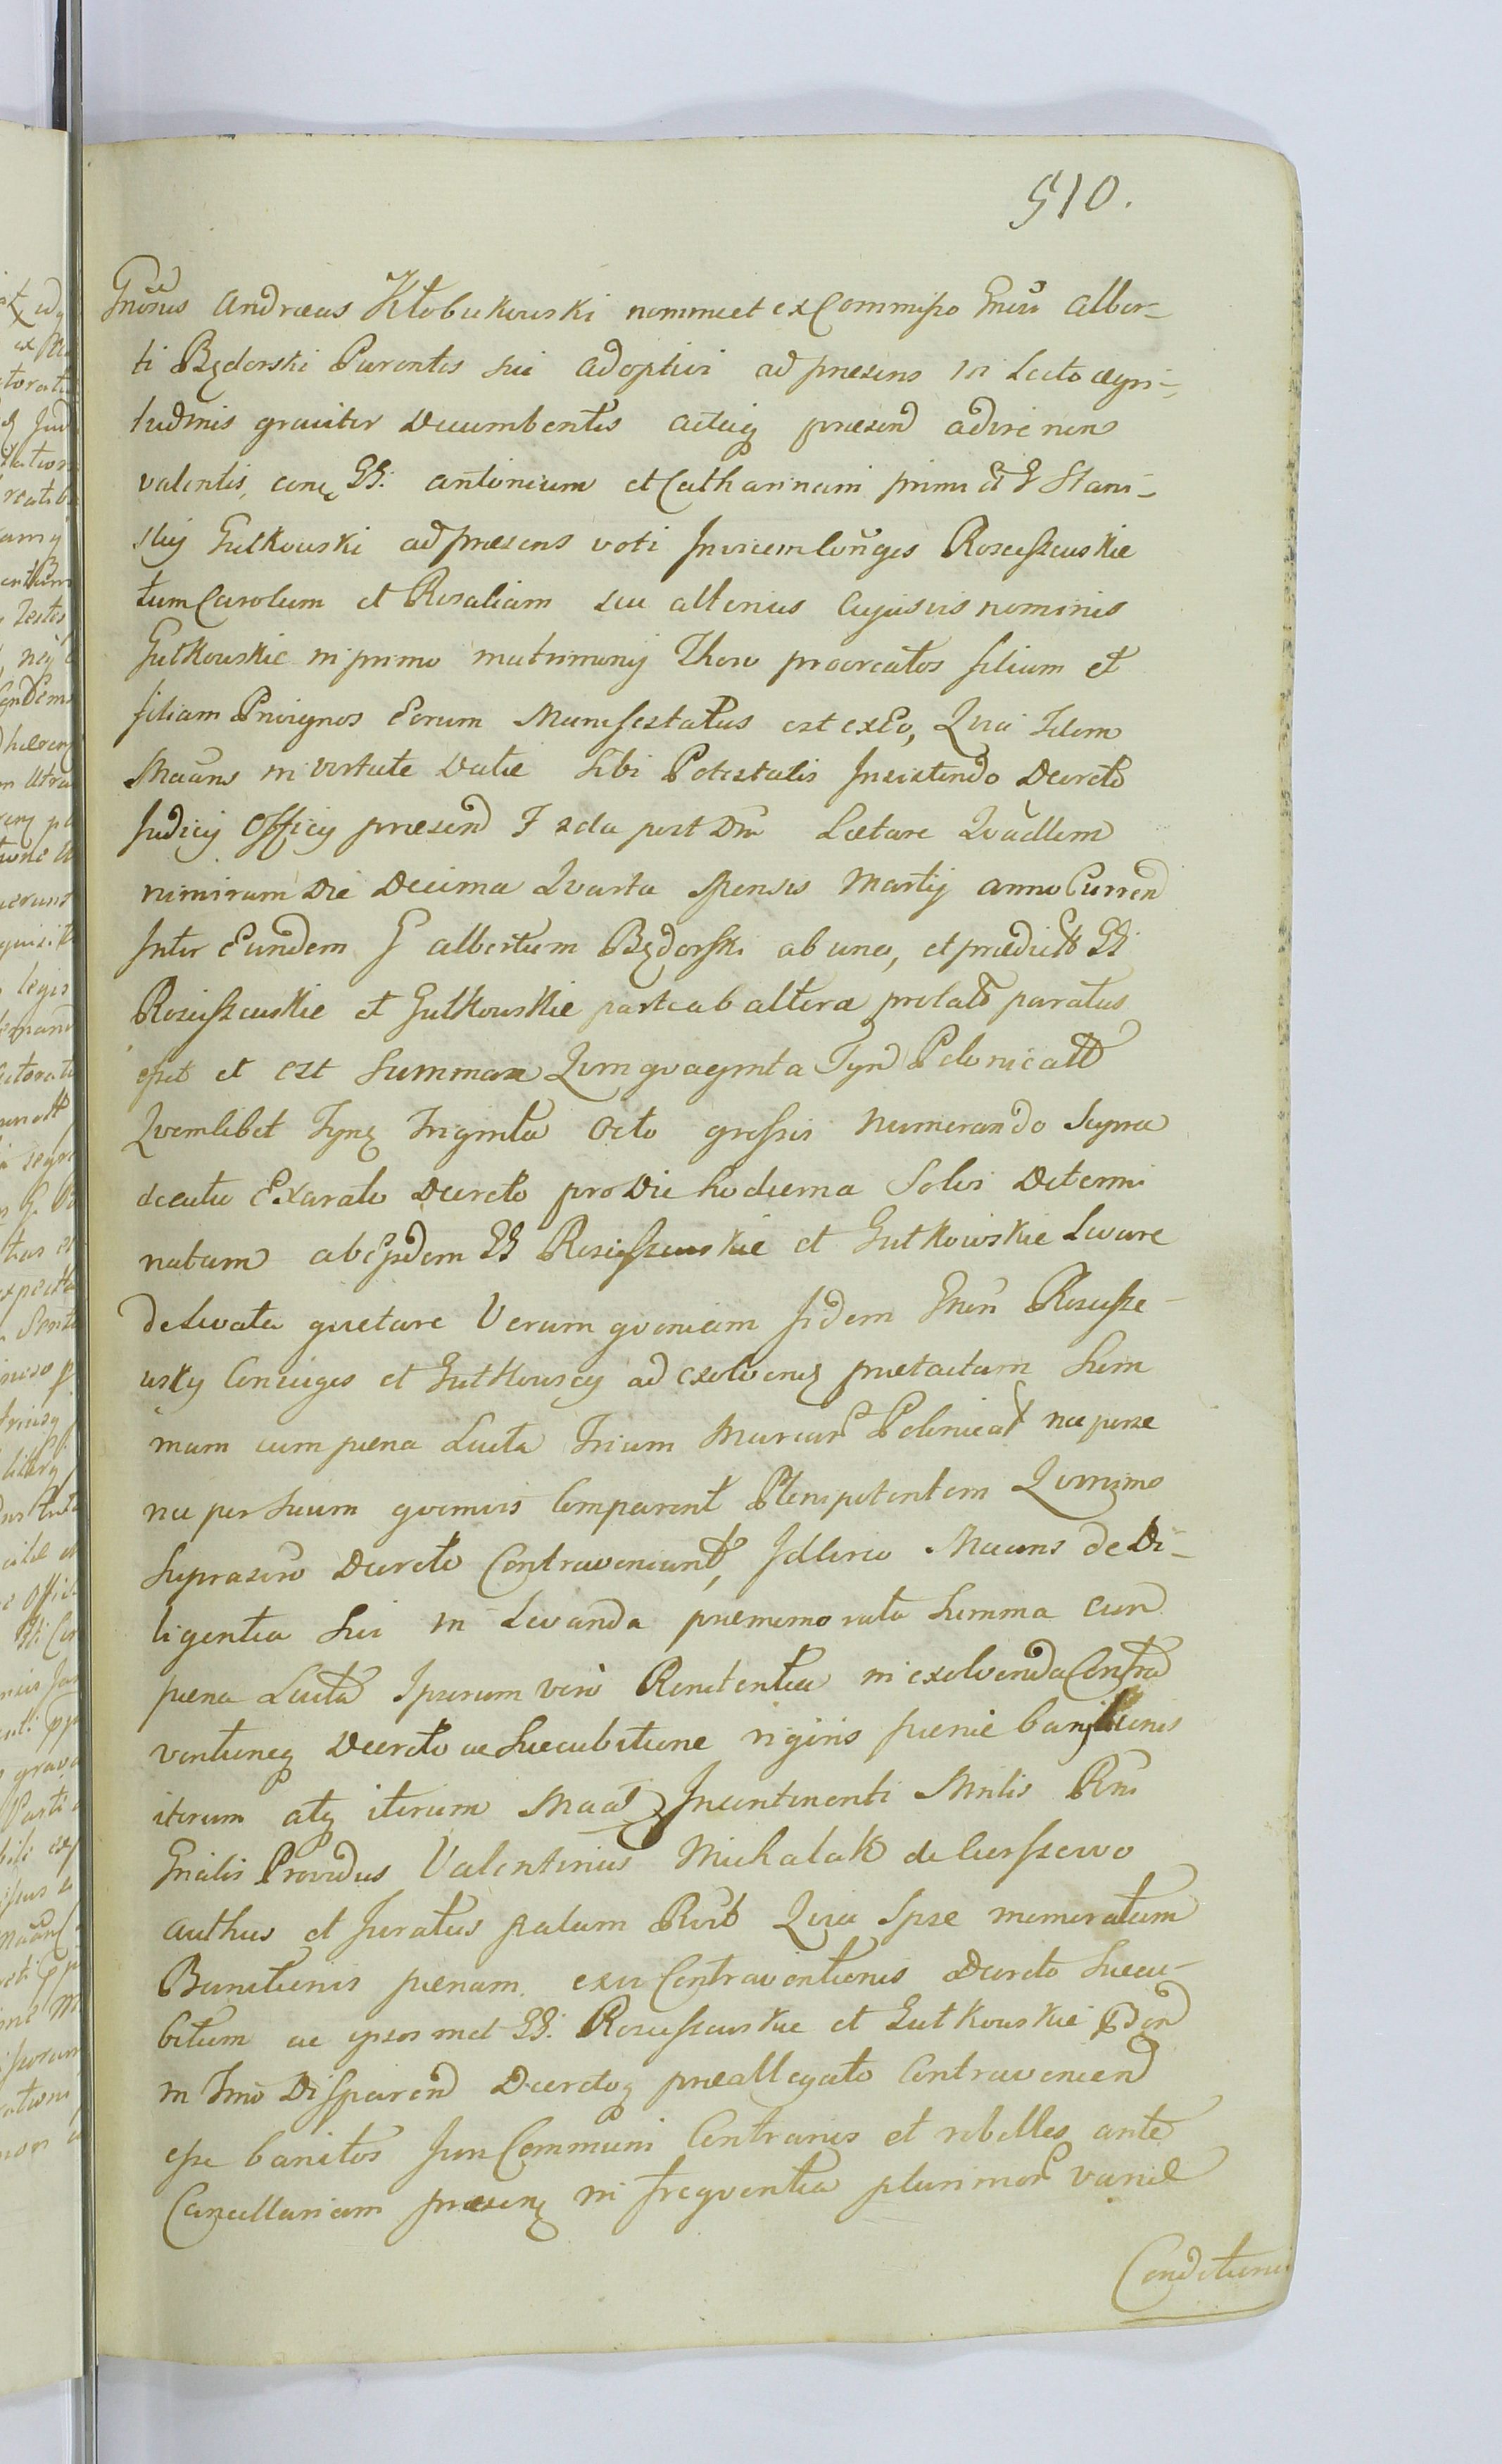 510.
Gnosus Andreas Kłobukowski nomine et ex Commisso Gnosi Alber-
ti Będorski Parentis sui adoptivi ad praesens in Lecto aegri-
tudinis graviter Decumbentis actuq praesend adire non
valentis, con͡ę GG. Antonium et Catharinam primi G Stani-
slaij Gutkowski ad praesens voti Invicem Conges Rosciszewskie
tum Carolum et Rosaliam seu alterius Cujusvis nominis
Gutkowskie in primo matrimonij Thoro procreatos filium et
filiam Privignos Eorum Manifestatus est ex Eo, Quia Idem
Maans in virtute Datae Sibi Potestatis Insistendo Decreto
Judicij Officij praesend F 2da post Dm̃ Laetare Quadlem
nimirum Die Decima Quarta Mensis Martij anno Currend
Inter Eundem G Albertum Będorski ab una, et praedictt GG
Rosciszewskie et Gutkowskie parte ab altera prolatto paratus
esset et est Summam Quinquaginta Tynf Polonicatt
Quemlibet Tynf Triginta Octo grossis numerando Supra
dicato Exarato Decreto pro Die hodierna Solvi Determi
natam ab Ejsdem GG Rosciszewskie et Gutkowskie Levare
de Levata quietare Verum quoniam Iidem Gnosi Roscisze-
wscy Conjuges et Gutkowscy ad exolvenę praetactam Sum
mam cum paena Lucta Trium Marcarũ Polonicał nec per se
nec per Suum quemvis Comparent Plenipotentem Quinimo
Suprascro Decreto Contraveniunt, Idcirco Maans de Di-
ligentia Sui in Levanda praememorata Summa cum
paena Lucta Ipsorum vero Renitentia in exolvenda Contra
ventioneq Decreto ac Succubitione rigoris paenae banitionis
iterum atq iterum Maat Incontinenti Mnlis Rni
Gnalis Providus Valentinus Michalak de Cierszewo
authus et Juratus palam Rcvit Quia Ipse memoratam
Banitionis paenam exvi Contraventionis Decreto Succu-
bitum ac ipsosmet GG. Rosciszewskie et Gutkowskie
in Tmo Disparend Decretoq praeallegato Contravenien͂d
esse banitos Juri Communi Contrarios et rebelles ante
Cancellariam praesenę in frequentia plurimor̃ variae
Conditionis